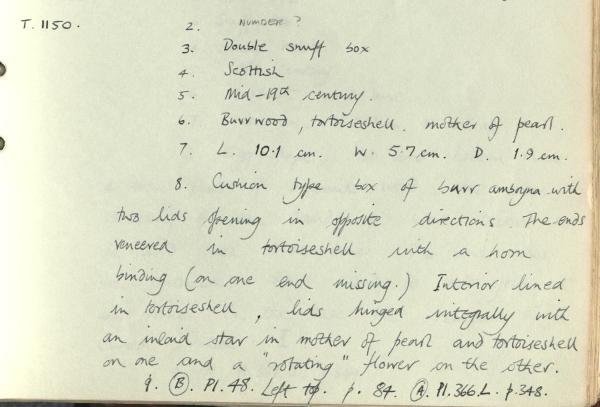 T. 1150.
2. NUMBER?
3. Double snuff box
4. Scottish
5. Mid-19th century.
6. Burrwood, tortoiseshell. mother of pearl.
7. L. 10.1 cm. W. 5.7 cm. D. 1.9 cm.
8. Cushion type box of burr amboyna with
two lids opening in opposite directions. The ends
veneered in tortoiseshell with a horn
binding (on one end missing.) Interior lined
in tortoiseshell, lids hinged integrally with
an inlaid star in mother of pearl and tortoiseshell
on one and a "rotating" flower on the other.
9. (B). Pl. 48. Left top. p. 84. (A). Pl. 366.L. p. 348.